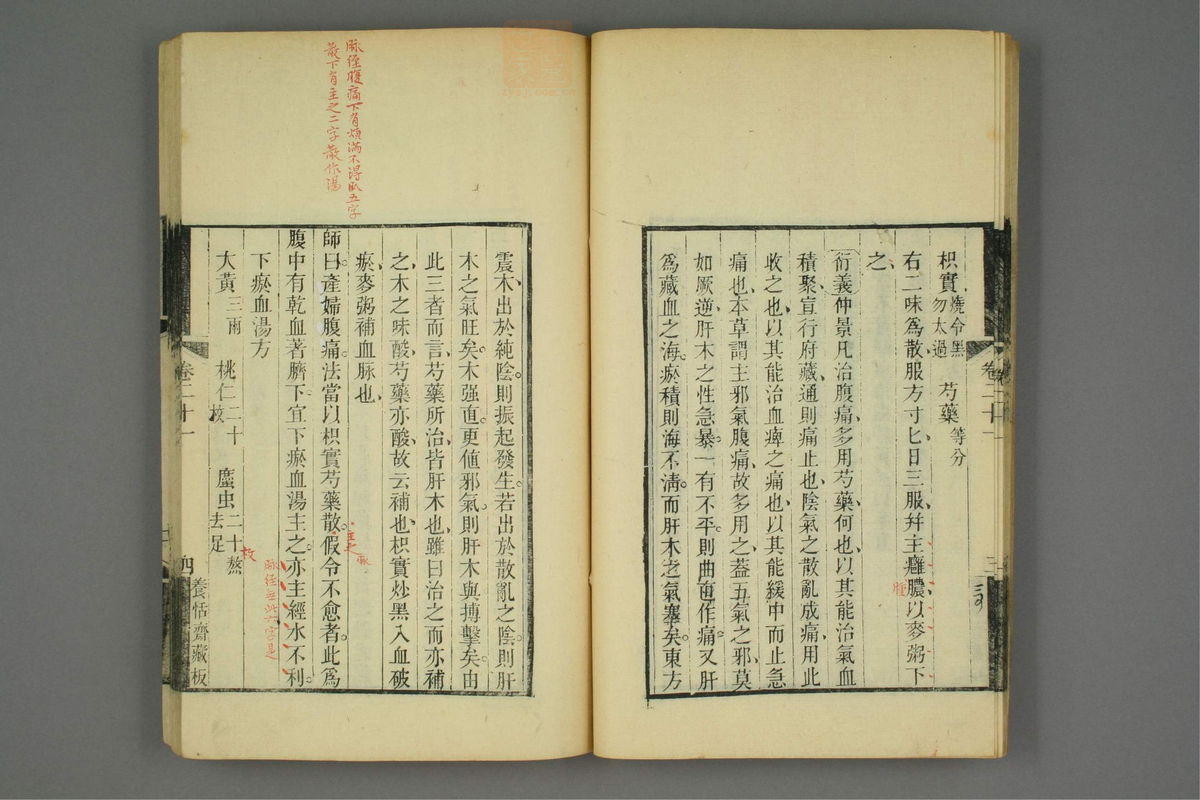 枳實燒令黑勿太過 芍藥等分
右二味爲散服方寸匕日三服幷主癰膿以麥粥下
之
衍義仲景凡治腹痛多用芍藥何也以其能治氣血
積聚宣行府藏通則痛止也陰氣之散亂成痛用此
收之也以其能治血痺之痛也以其能緩中而止急
痛也本草謂主邪氣腹痛故多用之葢五氣之邪莫
如厥逆肝木之性急暴一有不平則曲直作痛又肝
爲藏血之海瘀積則海不淸而肝木之氣塞矣東方
卷二十一
三
震木出於純陰則振起發生若出於散亂之陰則肝
木之氣旺矣木强直更値邪氣則肝木與搏擊矣由
此三者而言芍藥所治皆肝木也雖曰治之而亦補
之木之味酸芍藥亦酸故云補也枳實炒黑入血破
瘀麥粥補血脉也
師曰產婦腹痛法當以枳實芍藥散假令不愈者此爲
腹中有乾血著臍下宜下瘀血湯主之亦主經水不利
下瘀血湯方
大黃三兩 桃仁二十枚 䗪虫二十熬去足
卷二十一
四
養恬齋藏板
脉徑腹痛下有煩滿不得臥五字
散下有主之二字散作湯
主之
枚
脉徑無此六字是